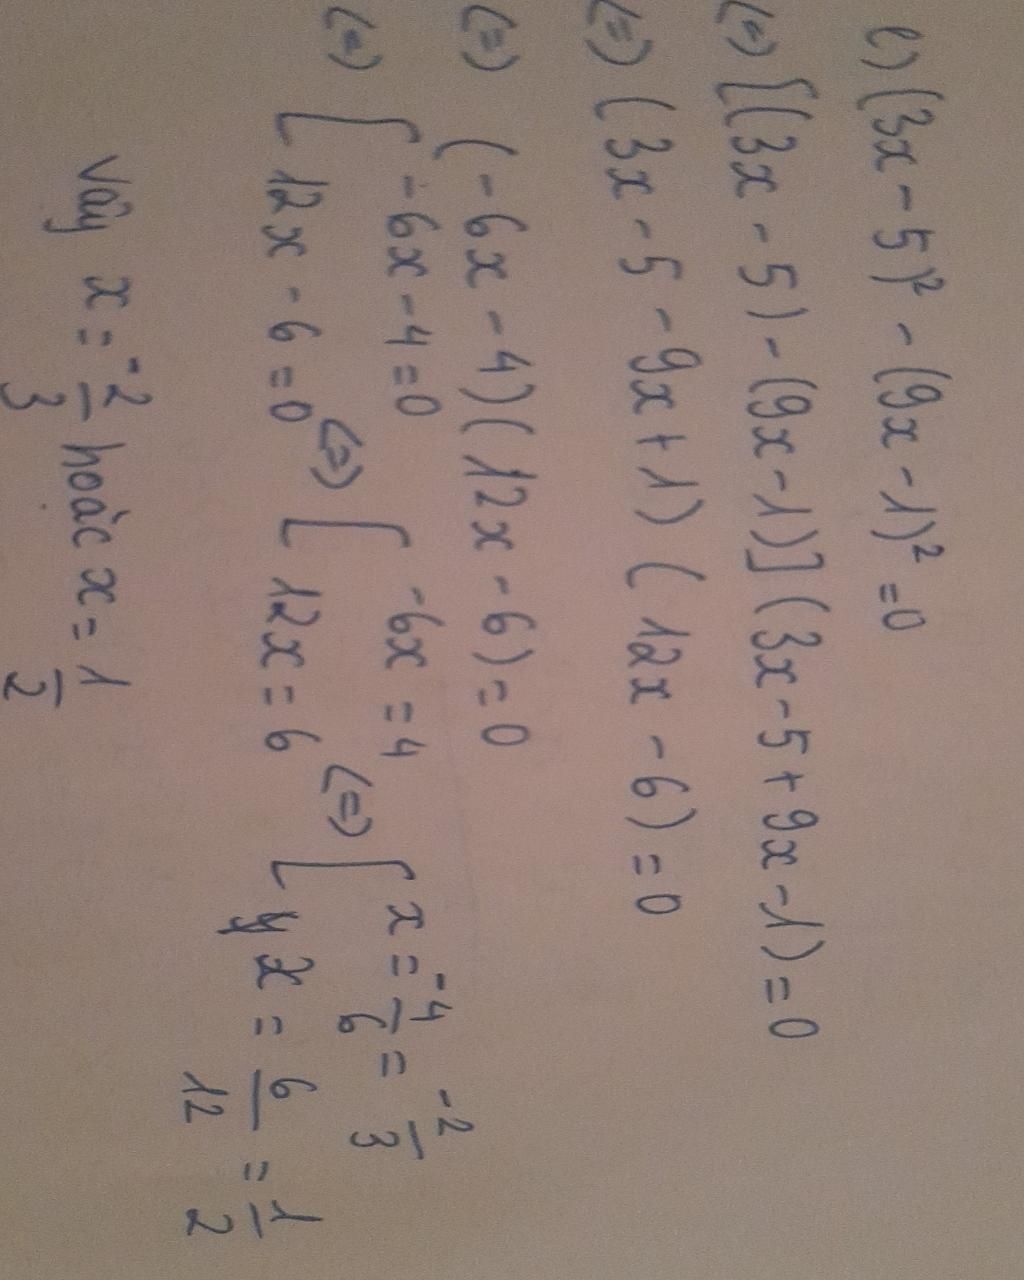 e) (3x - 5)² - (9x - 1)² = 0
(=) [(3x - 5) - (9x - 1)] (3x - 5 + 9x - 1) = 0
(=) (3x - 5 - 9x + 1) ( 12x - 6) = 0
(=) (-6x - 4) ( 12x - 6) = 0
(=) [ -6x - 4 = 0 (=) [ -6x = 4 (=) [ x = -4/6 = -2/3
12x - 6 = 0 12x = 6 x = 6/12 = 1/2
Vậy x = -2/3 hoặc x = 1/2